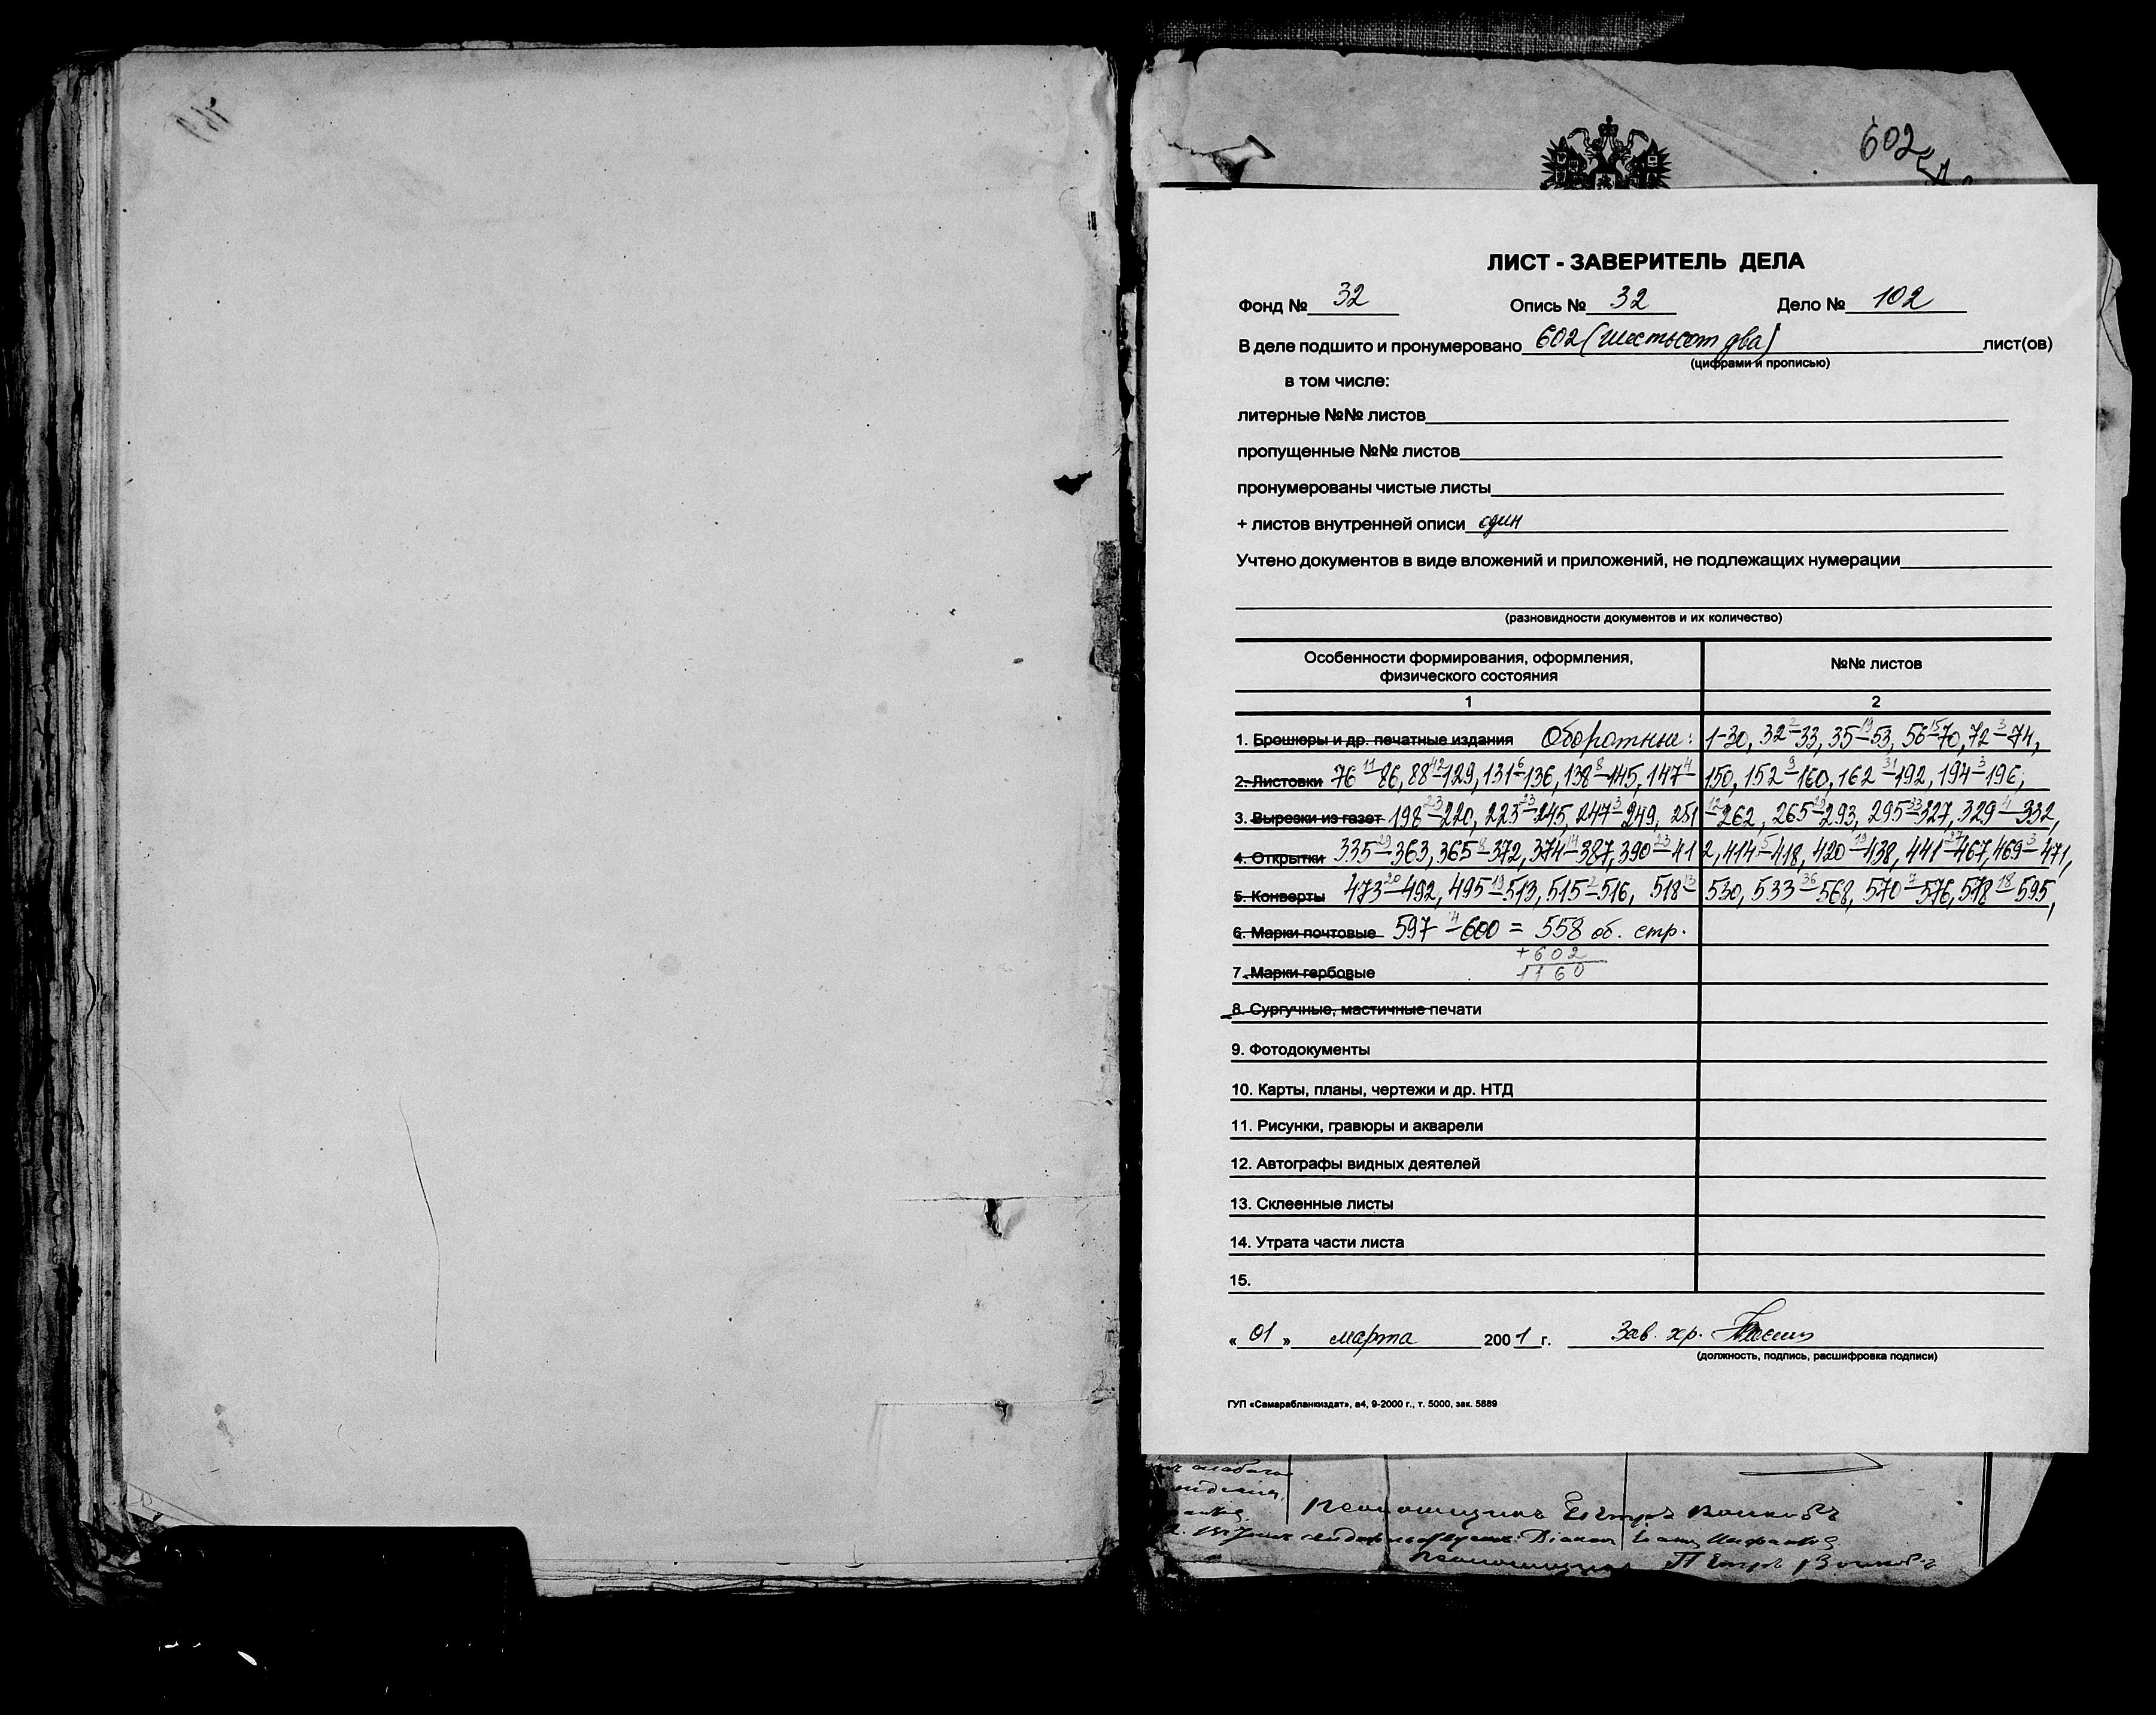 602
ЛИСТ - ЗАВЕРИТЕЛЬ ДЕЛА
Фонд № 32 Опись № 32 Дело № 102
В деле подшито и пронумеровано 602 (шестьсот два) лист(ов)
(цифрами и прописью)
в том числе:
литерные №№ листов
пропущенные №№ листов
пронумерованы чистые листы
+ листов внутренней описи один
Учтено документов в виде вложений и приложений, не подлежащих нумерации
(разновидности документов и их количество)
Особенности формирования, оформления, №№ листов
физического состояния
1 2
1. Брошюры и др. печатные издания Оборотные: 1-30, 32-33, 35-53, 56-70, 72-74,
2. Листовки 76-86, 88-129, 131-136, 138-145, 147-150, 152-160, 162-192, 194-196,
3. Вырезки из газет 198-220, 223-245, 247-249, 251-262, 265-293, 295-327, 329-332,
4. Открытки 335-363, 365-372, 374-387, 390-412, 414-418, 420-438, 441-467, 469-471,
5. Конверты 473-492, 495-513, 515-516, 518-530, 533-568, 570-576, 578-595,
6. Марки почтовые 597-600 = 558 об. стр.
+602
7. Марки гербовые 1160
8. Сургучные, мастичные печати
9. Фотодокументы
10. Карты, планы, чертежи и др. НТД
11. Рисунки, гравюры и акварели
12. Автографы видных деятелей
13. Склеенные листы
14. Утрата части листа
15.
« 01 » марта 2001 г. Зав. хр.
(должность, подпись, расшифровка подписи)
ГУП «Самарабланкиздат», а4, 9-2000 г., т. 5000, зак. 5889